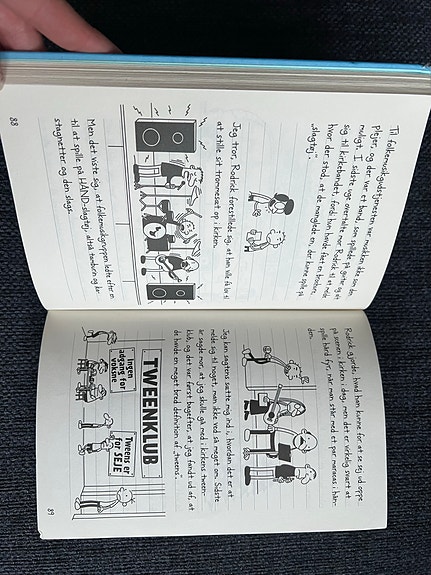 Til folkemusikgudstjenesten var musikken ikke som den
plejer, og der var et band, som spillede på guitar og alt
muligt. I sidste uge overtalte mor Rodrick til at melde
sig til kirkebandet, fordi hun havde fået en brochure,
hvor der stod, at de manglede en, der kunne spille på
"slagtøj".
Jeg tror, Rodrick forestillede sig, at han ville få lov til
at stille sit trommesæt op i kirken.
Men det viste sig, at folkemusikgruppen ledte efter en
til at spille på HÅND-slagtøj, altså tamburin og
og den slags.
88
Rodrick gjorde, hvad han kunne for at se sej ud oppe
på scenen i kirken i dag, men det er virkelig svært at
spille hård fyr, når man står med et par maracas i hån-
den.
Jeg kan sagtens sætte mig ind i, hvordan det er at
melde sig til noget, man ikke ved så meget om. Sidste
år sagde mor, at jeg skulle gå med i kirkens tween-
klub, og det var først bagefter, at jeg fandt ud af, at
de havde en meget bred definition af "tweens".
TWEENKLUB
Ingen
adgang for
voksne
Tweens er
for SEJE
89